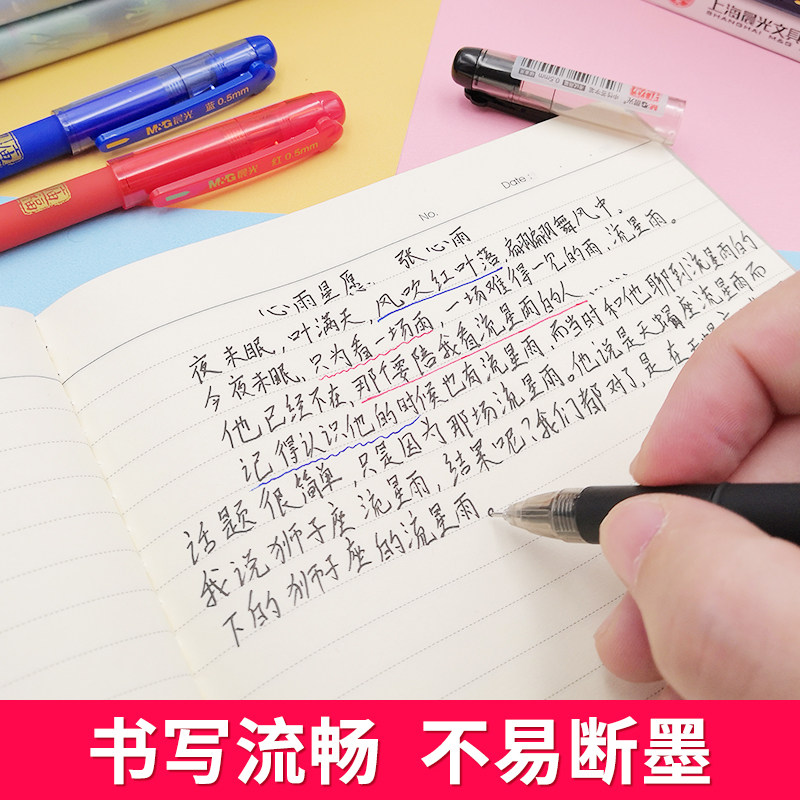 上海晨光文具
SHANGHAI M&G
0.5mm
M&G晨光 蓝 0.5mm
M&G晨光 红 0.5mm
No.
Date
心雨星愿 张心雨
夜未眠，叶满天，风吹红叶落，翩翩舞风中。
今夜未眠，只为看一场雨，一场难得一个的雨，流星雨。
他已经不在，那个要陪我看流星雨的人……
记得认识他的时候也有流星雨，而当时和他聊到流星雨的
话题很简单，只是因为那场流星雨。他说是天蝎座流星雨而
我说狮子座流星雨，结果呢？我们都对了，是在天蝎
下的狮子座的流星雨。
书写流畅 不易断墨